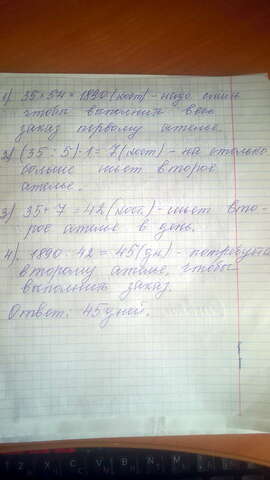 1) 35×54 = 1890 (кост) - надо сшить
чтобы выполнить весь
заказ первому ателье.
2) (35 : 5)·1 = 7 (кост) - на столько
больше шьет второе
ателье.
3) 35 + 7 = 42 (кост) - шьет вто-
рое ателье в день.
4) 1890 : 42 = 45 (дн) - потребуется
второму ателье, чтобы
выполнить заказ.
Ответ: 45 дней.